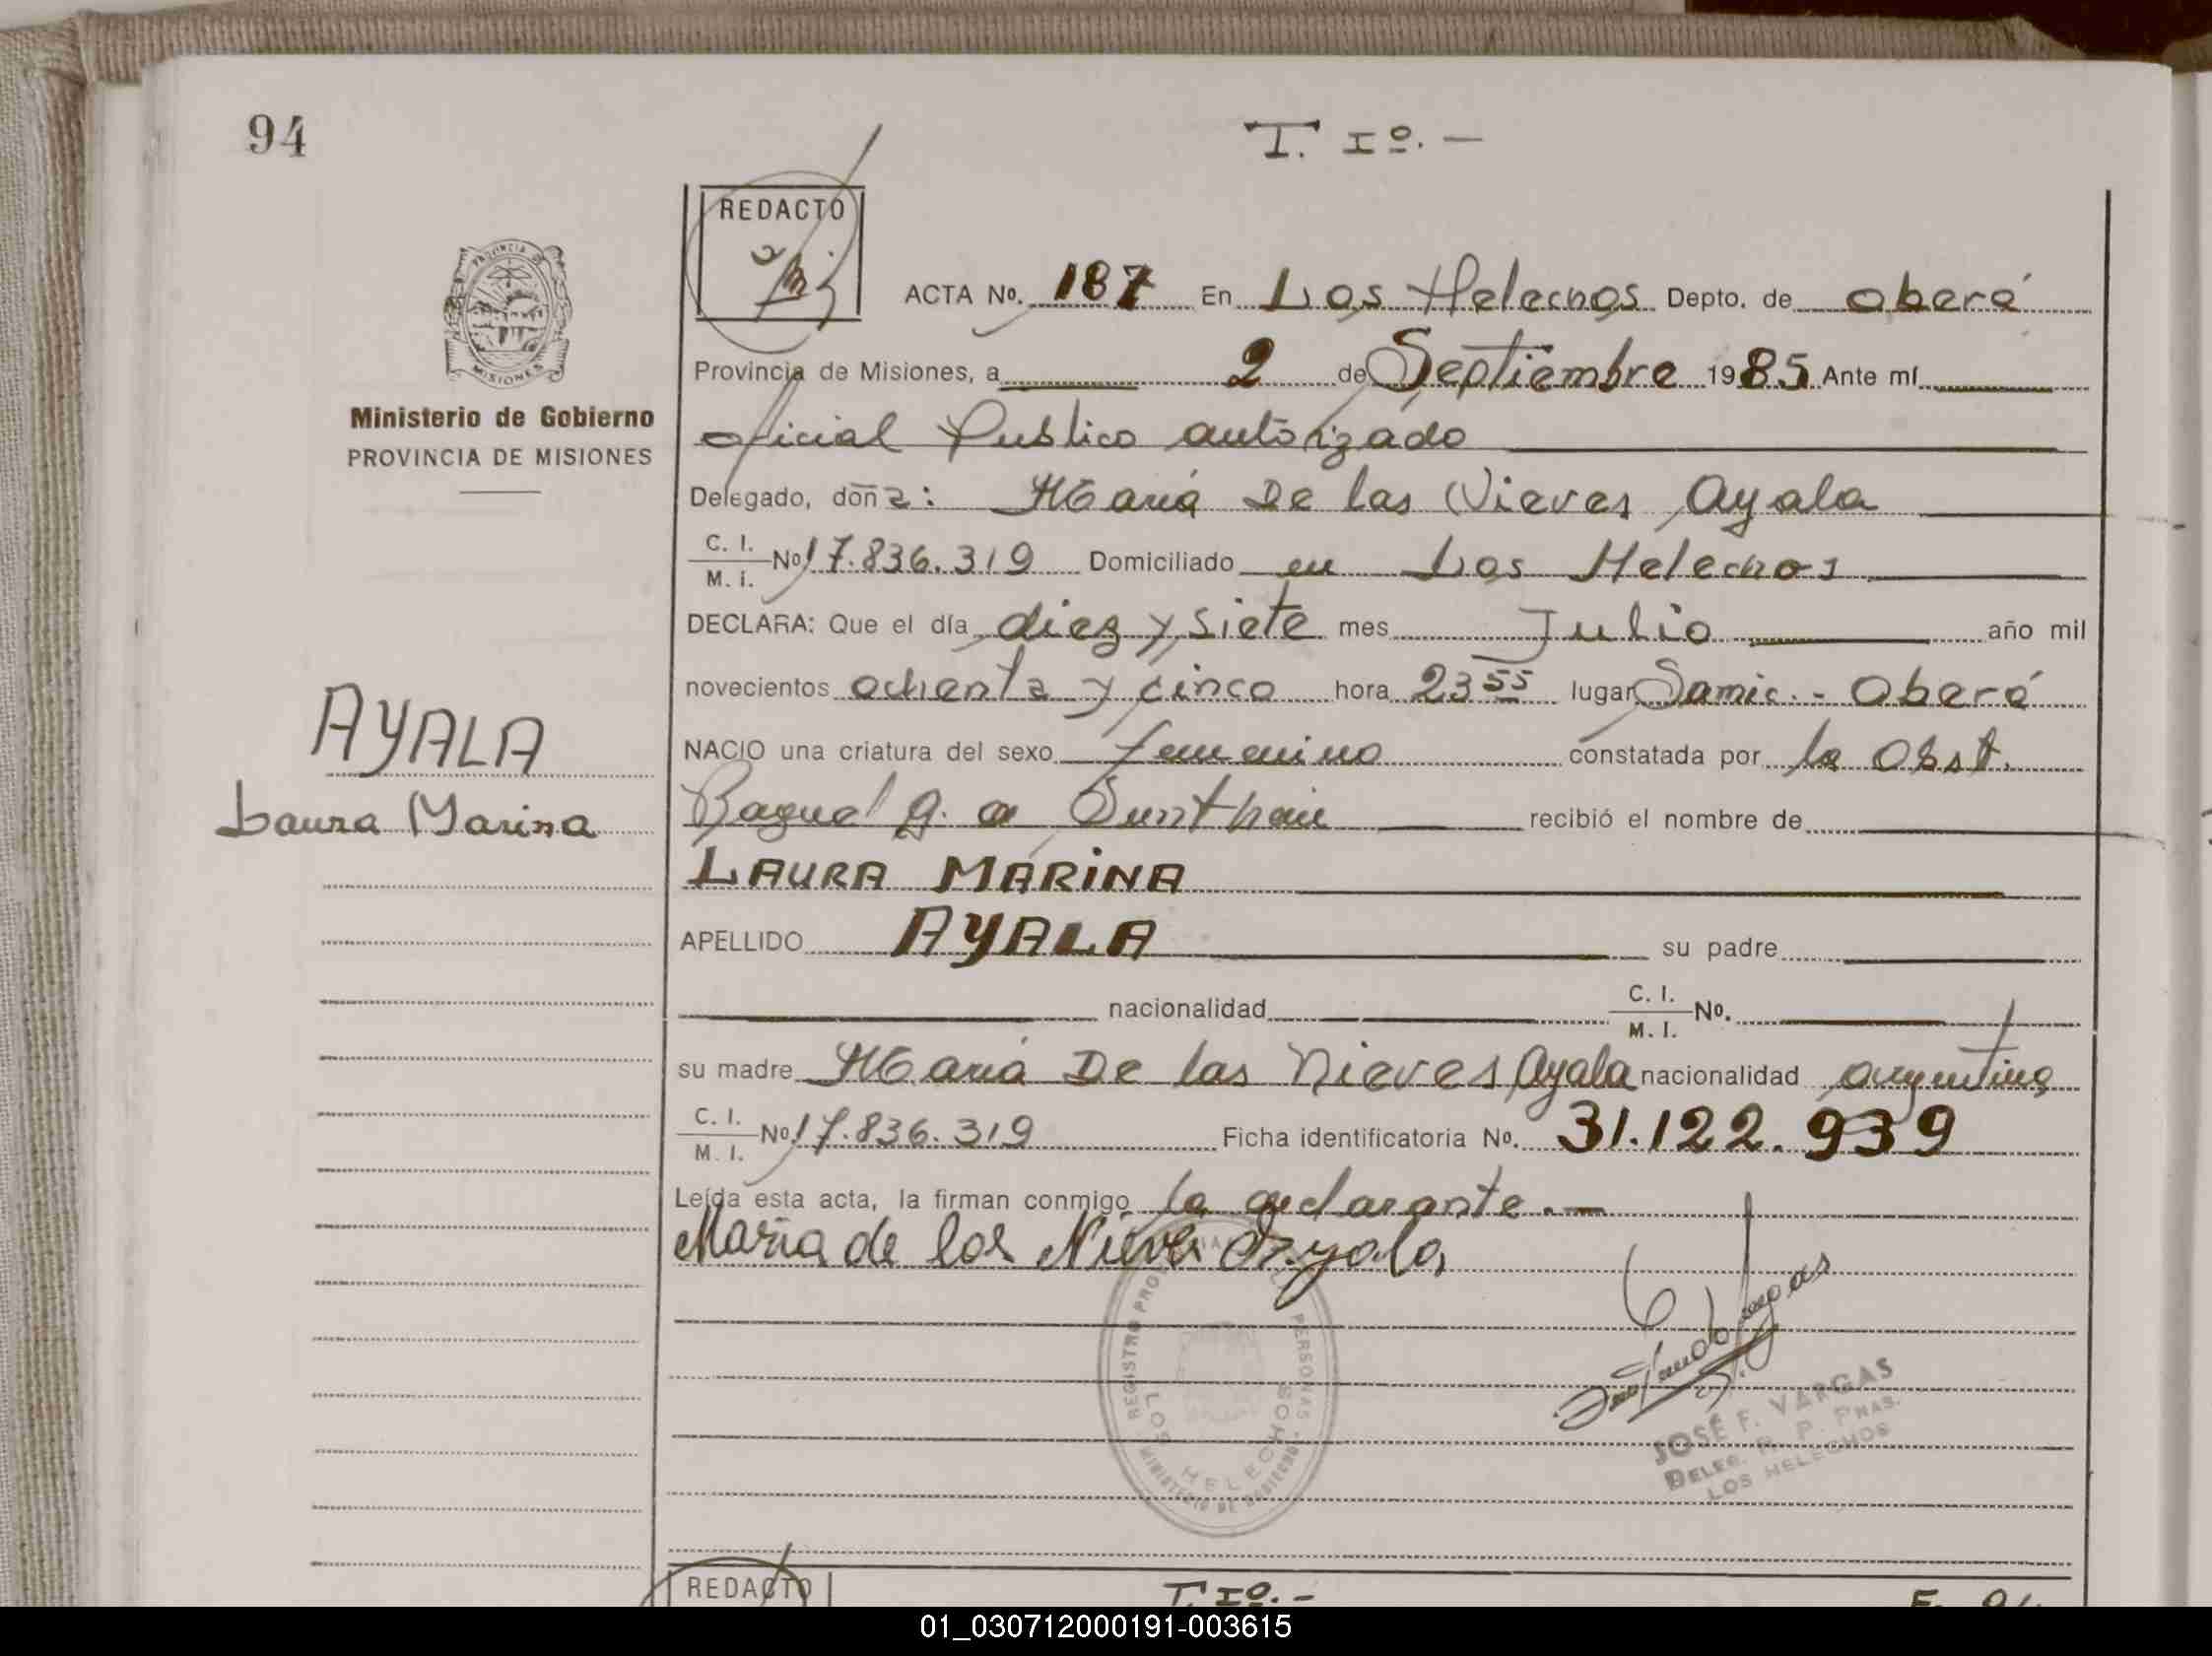 94
T. Iº.-
REDACTO
PROVINCIA
MISIONES
Ministerio de Gobierno
PROVINCIA DE MISIONES
ACTA Nº. 187 En Los Helechos Depto. de Oberá
Provincia de Misiones, a 2 de Septiembre 1985 Ante mí
oficial Publico autorizado
Delegado, doña: María De las Nieves Ayala
C. I. / M. I. Nº 17.836.319 Domiciliado en Los Helechos
DECLARA: Que el día diez y siete mes Julio año mil
novecientos ochenta y cinco hora 23 55 lugar Samic.- Oberá
NACIO una criatura del sexo femenino constatada por la Obst.
Raquel G. recibió el nombre de
AYALA
Laura Marina
LAURA MARINA
APELLIDO AYALA su padre
nacionalidad C. I. / M. I. Nº.
su madre María De las Nieves Ayala nacionalidad argentina
C. I. / M. I. Nº 17.836.319 Ficha identificatoria Nº. 31.122.939
Leída esta acta, la firman conmigo la declarante.-
Maria de los Nieves Ayala
REGISTRO PERSONAS
MINISTERIO DE GOBIERNO
LOS HELECHOS
JOSÉ F. VARGAS
DELEG. R. P. PNAS.
LOS HELECHOS
REDACTO
T. Iº.-
01_030712000191-003615